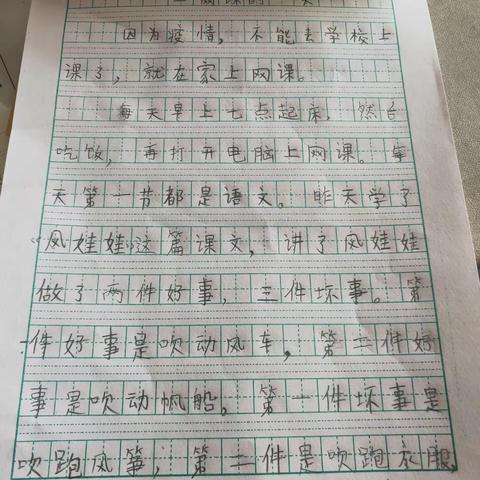 上网课的一天
因为疫情，不能去学校上
课了，就在家上网课。
每天早上七点起床，然后
吃饭，再打开电脑上网课。每
天第一节都是语文。昨天学了
“风娃娃”这篇课文，讲了风娃娃
做了两件好事，三件坏事。第
一件好事是吹动风车，第二件好
事是吹动帆船。第一件坏事是
吹跑风筝，第二件是吹跑衣服，